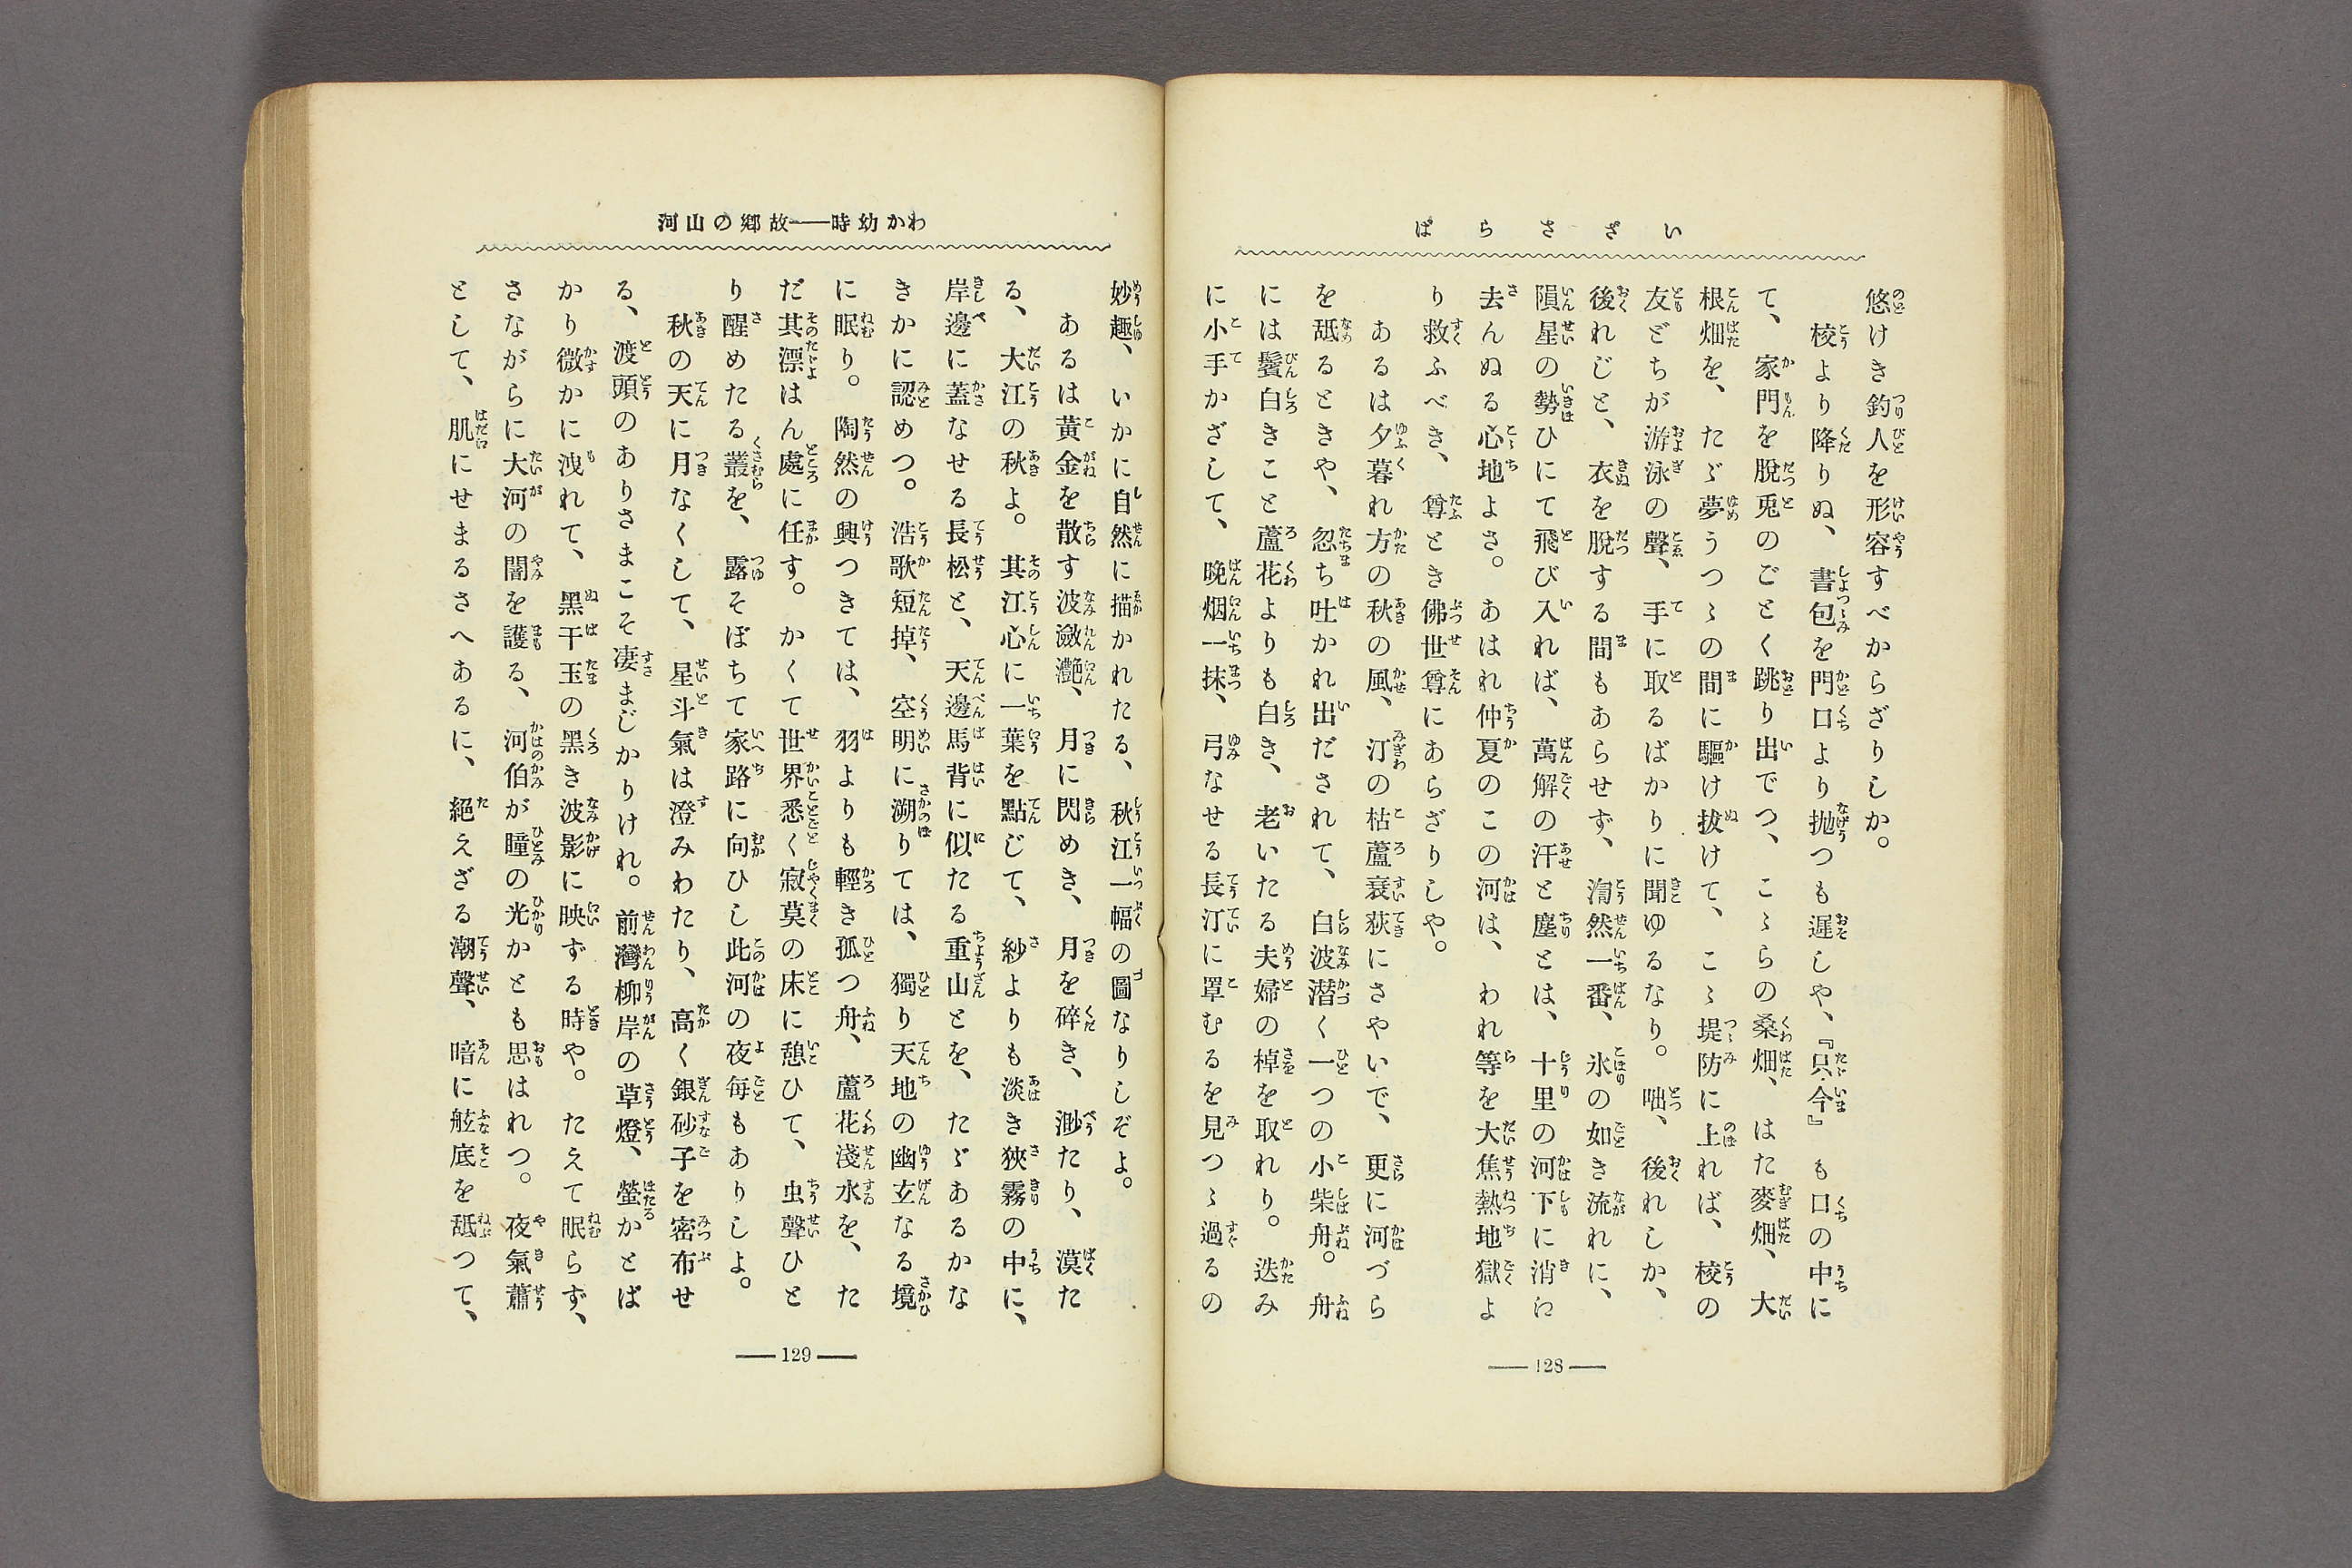 いさざらば
悠けき釣人を形容すべからざりしか。
校より降りぬ、書包を門口より抛つも遲しや、『只今』も口の中に
て、家門を脫兎のごとく跳り出でつ、こゝらの桑畑、はた麥畑、大
根畑を、たゞ夢うつゝの間に驅け拔けて、こゝ堤防に上れば、校の
友どちが游泳の聲、手に取るばかりに聞ゆるなり。咄、後れしか、
後れじと、衣を脫する間もあらせず、渹然一番、氷の如き流れに、
隕星の勢ひにて飛び入れば、萬斛の汗と塵とは、十里の河下に消に
去んぬる心地よさ。あはれ仲夏のこの河は、われ等を大焦熱地獄よ
り救ふべき、尊とき佛世尊にあらざりしや。
あるは夕暮れ方の秋の風、汀の枯蘆衰荻にさやいで、更に河づら
を舐るときや、忽ち吐かれ出だされて、白波潜く一つの小柴舟。舟
には鬢白きこと蘆花よりも白き、老いたる夫婦の棹を取れり。迭み
に小手かざして、晩烟一抹、弓なせる長汀に罩むるを見つゝ過るの
128
わか幼時――故鄉の山河
妙趣、いかに自然に描かれたる、秋江一幅の圖なりしぞよ。
あるは黃金を散す波瀲灔、月に閃めき、月を碎き、渺たり、漠た
る、大江の秋よ。其江心に一葉を點じて、紗よりも淡き狹霧の中に、
岸邊に蓋なせる長松と、天邊馬背に似たる重山とを、たゞあるかな
きかに認めつ。浩歌短掉、空明に溯りては、獨り天地の幽玄なる境
に眠り。陶然の興つきては、羽よりも輕き孤つ舟、蘆花淺水を、た
だ其漂はん處に任す。かくて世界悉く寂莫の床に憩ひて、虫聲ひと
り醒めたる叢を、露そぼちて家路に向ひし此河の夜每もありしよ。
秋の天に月なくして、星斗氣は澄みわたり、高く銀砂子を密布せ
る、渡頭のありさまこそ凄まじかりけれ。前灣柳岸の草燈、螢かとば
かり微かに洩れて、黑干玉の黑き波影に映ずる時や。たえて眠らず、
さながらに大河の闇を護る、河伯が瞳の光かとも思はれつ。夜氣蕭
として、肌にせまるさへあるに、絕えざる潮聲、暗に舷底を舐つて、
129